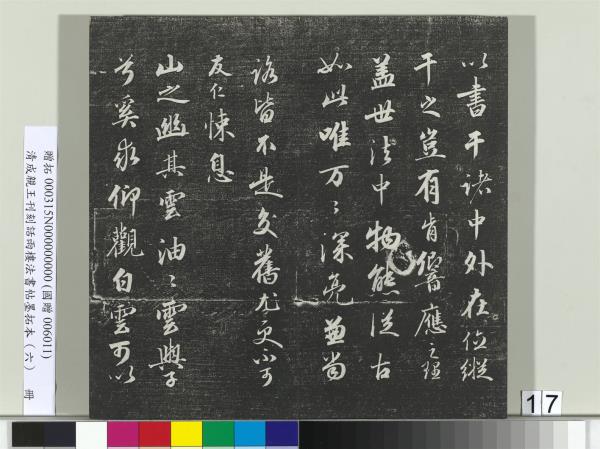 以書干諸中外在位縱
干之豈有肯響應之理
蓋世法中物態從古
如此唯万万深亮無尚
諸皆不是交舊尤更不可
友仁悚息
山之幽其雲油油雲與子
兮奚求仰觀白雲可以
17
贈拓000315N000000000(國贈006011)
清成親王刊刻話雨樓法書帖墨拓本(六) 冊